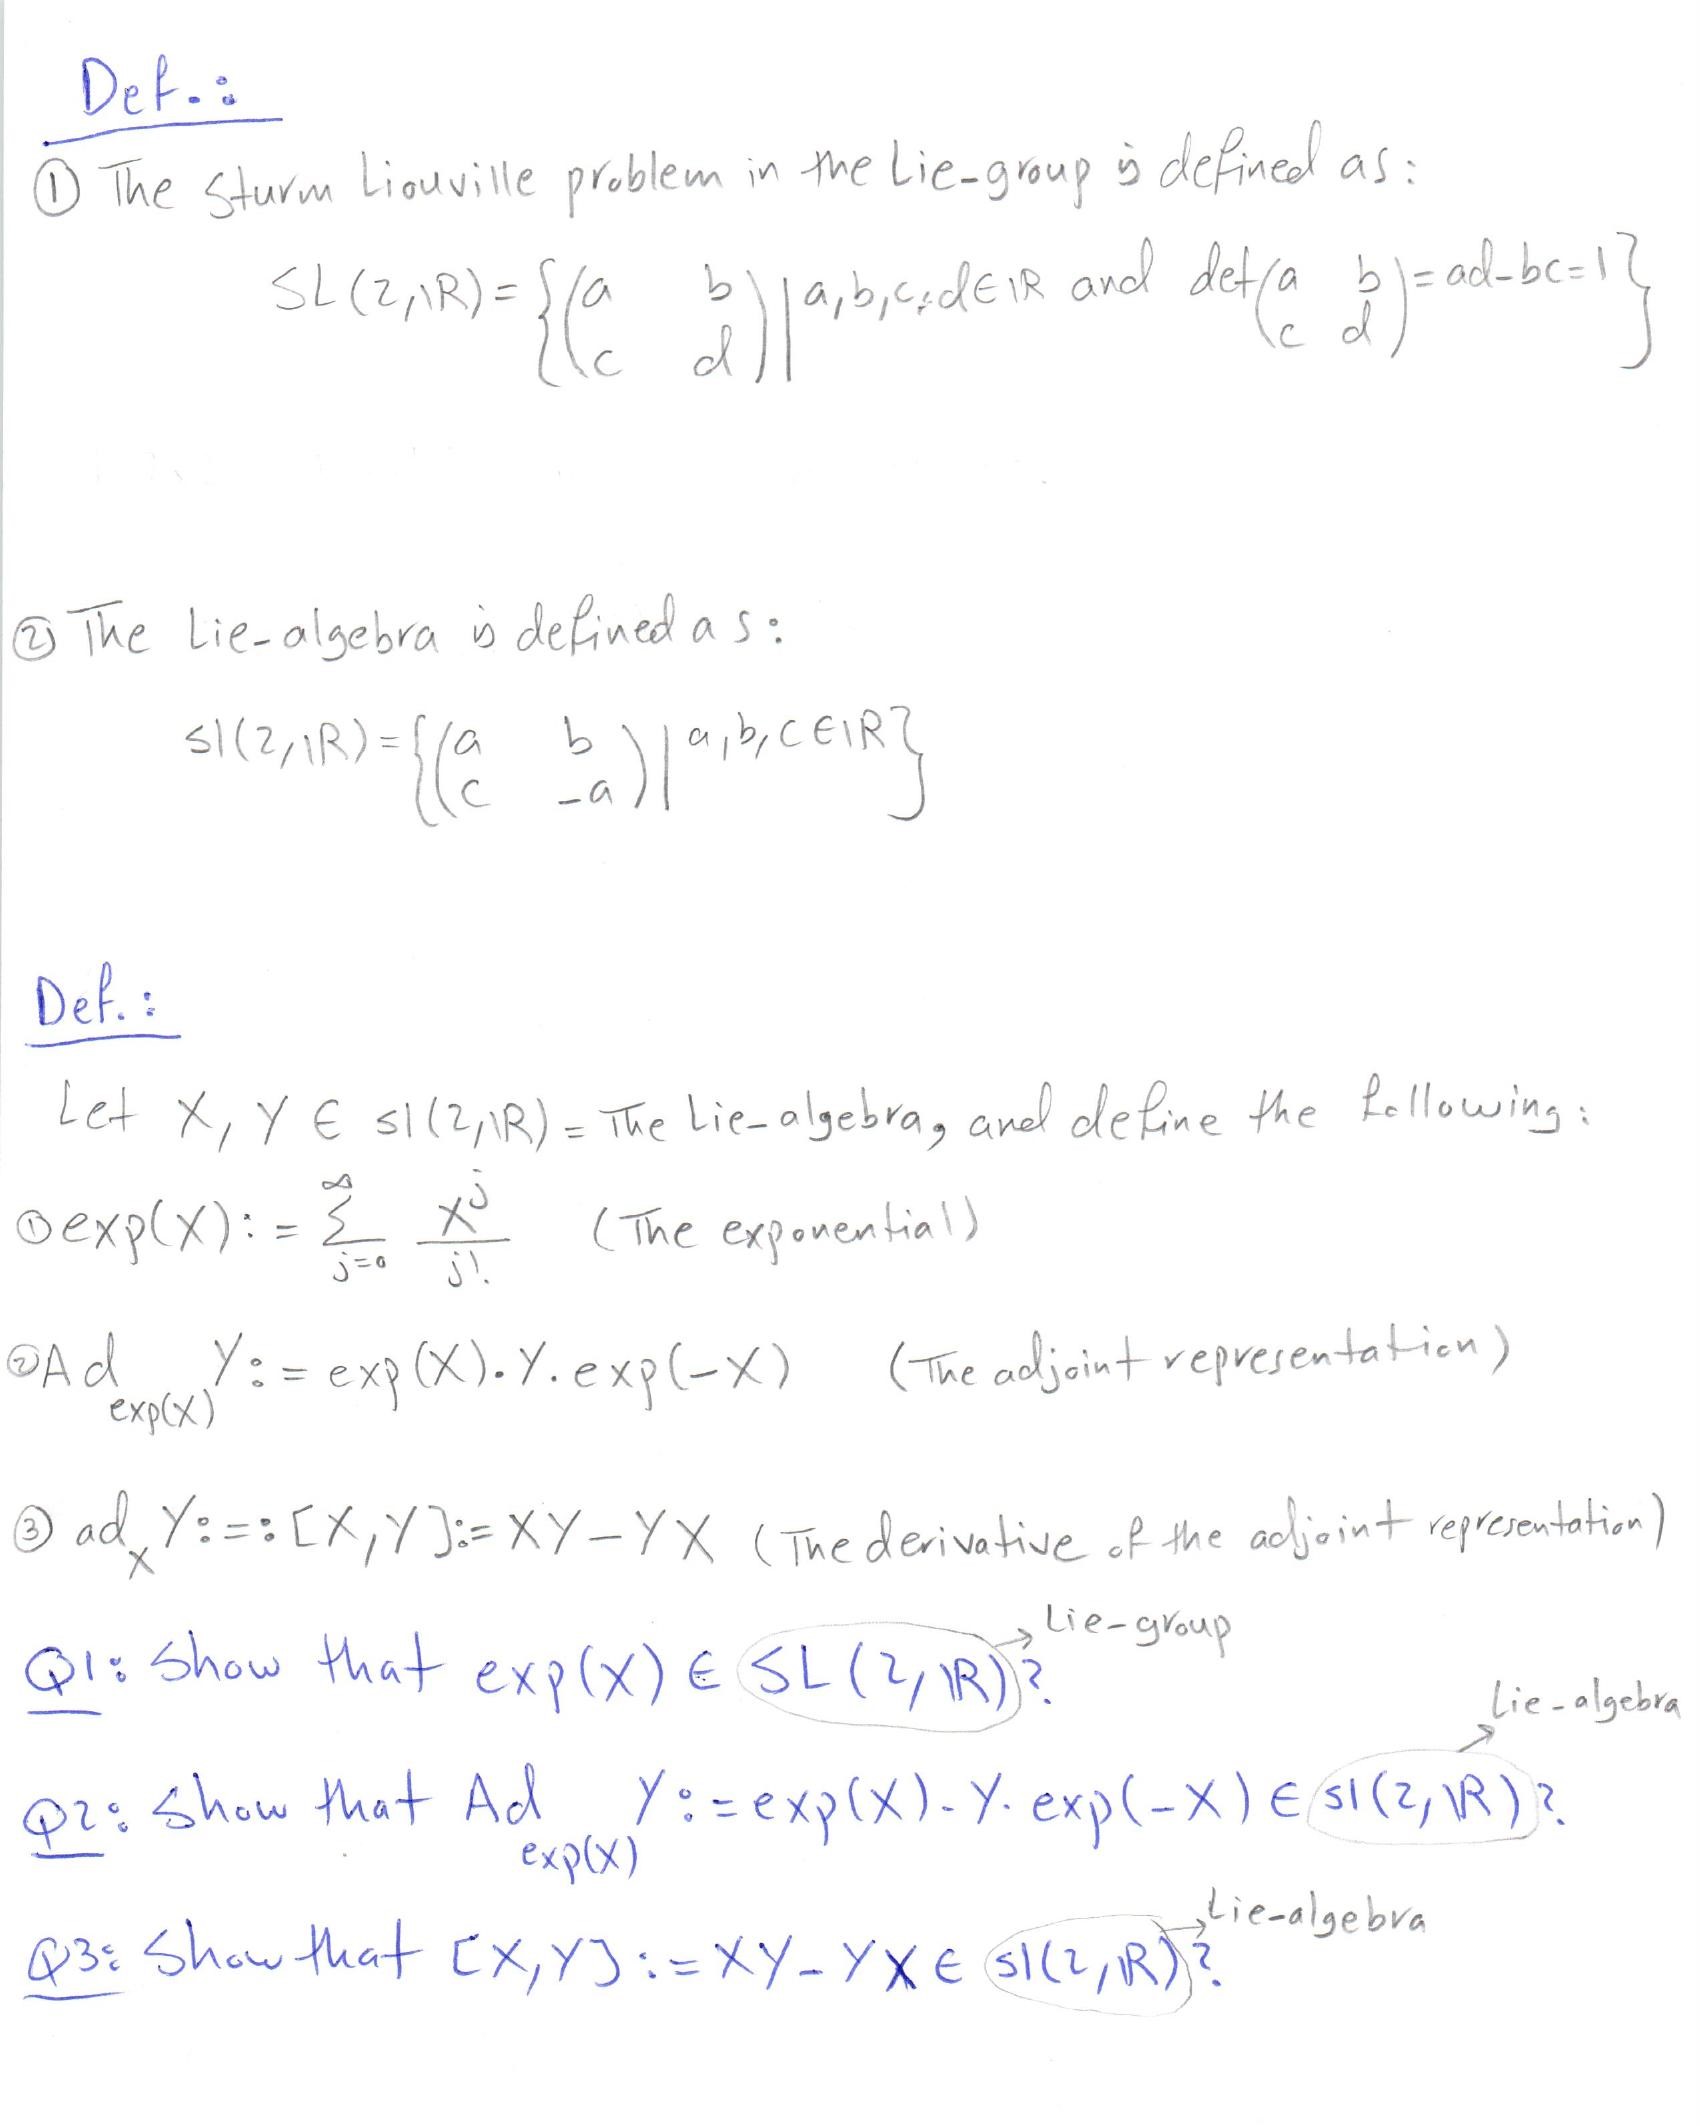 Def.:
① The Sturm Liouville problem in the Lie-group is defined as:
SL(2,ℝ)={(a b c d)|a,b,c,d∈ℝ and det(a b c d)=ad-bc=1}
② The Lie-algebra is defined as:
sl(2,ℝ)={(a b c -a)|a,b,c∈ℝ}
Def.:
Let X, Y ∈ sl(2,ℝ)= The Lie-algebra, and define the following:
① exp(X):= ∑_{j=0}^{∞} X^j/j! (The exponential)
② Ad_{exp(X)} Y:= exp(X).Y.exp(-X) (The adjoint representation)
③ ad_X Y:=:[X,Y]:=XY-YX (The derivative of the adjoint representation)
Lie-group
Q1: Show that exp(X) ∈ SL(2,ℝ)?
Lie-algebra
Q2: Show that Ad_{exp(X)} Y:=exp(X).Y.exp(-X) ∈ sl(2,ℝ)?
Lie-algebra
Q3: Show that [X,Y]:=XY-YX ∈ sl(2,ℝ)?